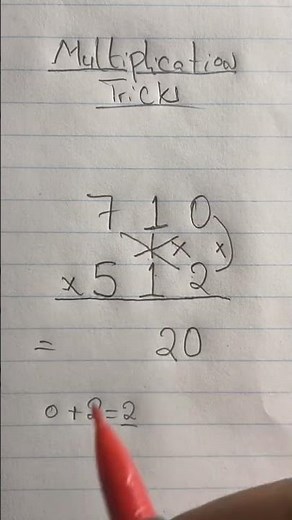 Multiplication
Tricks
7 1 0
x 5 1 2
= 20
0 + 2 = 2